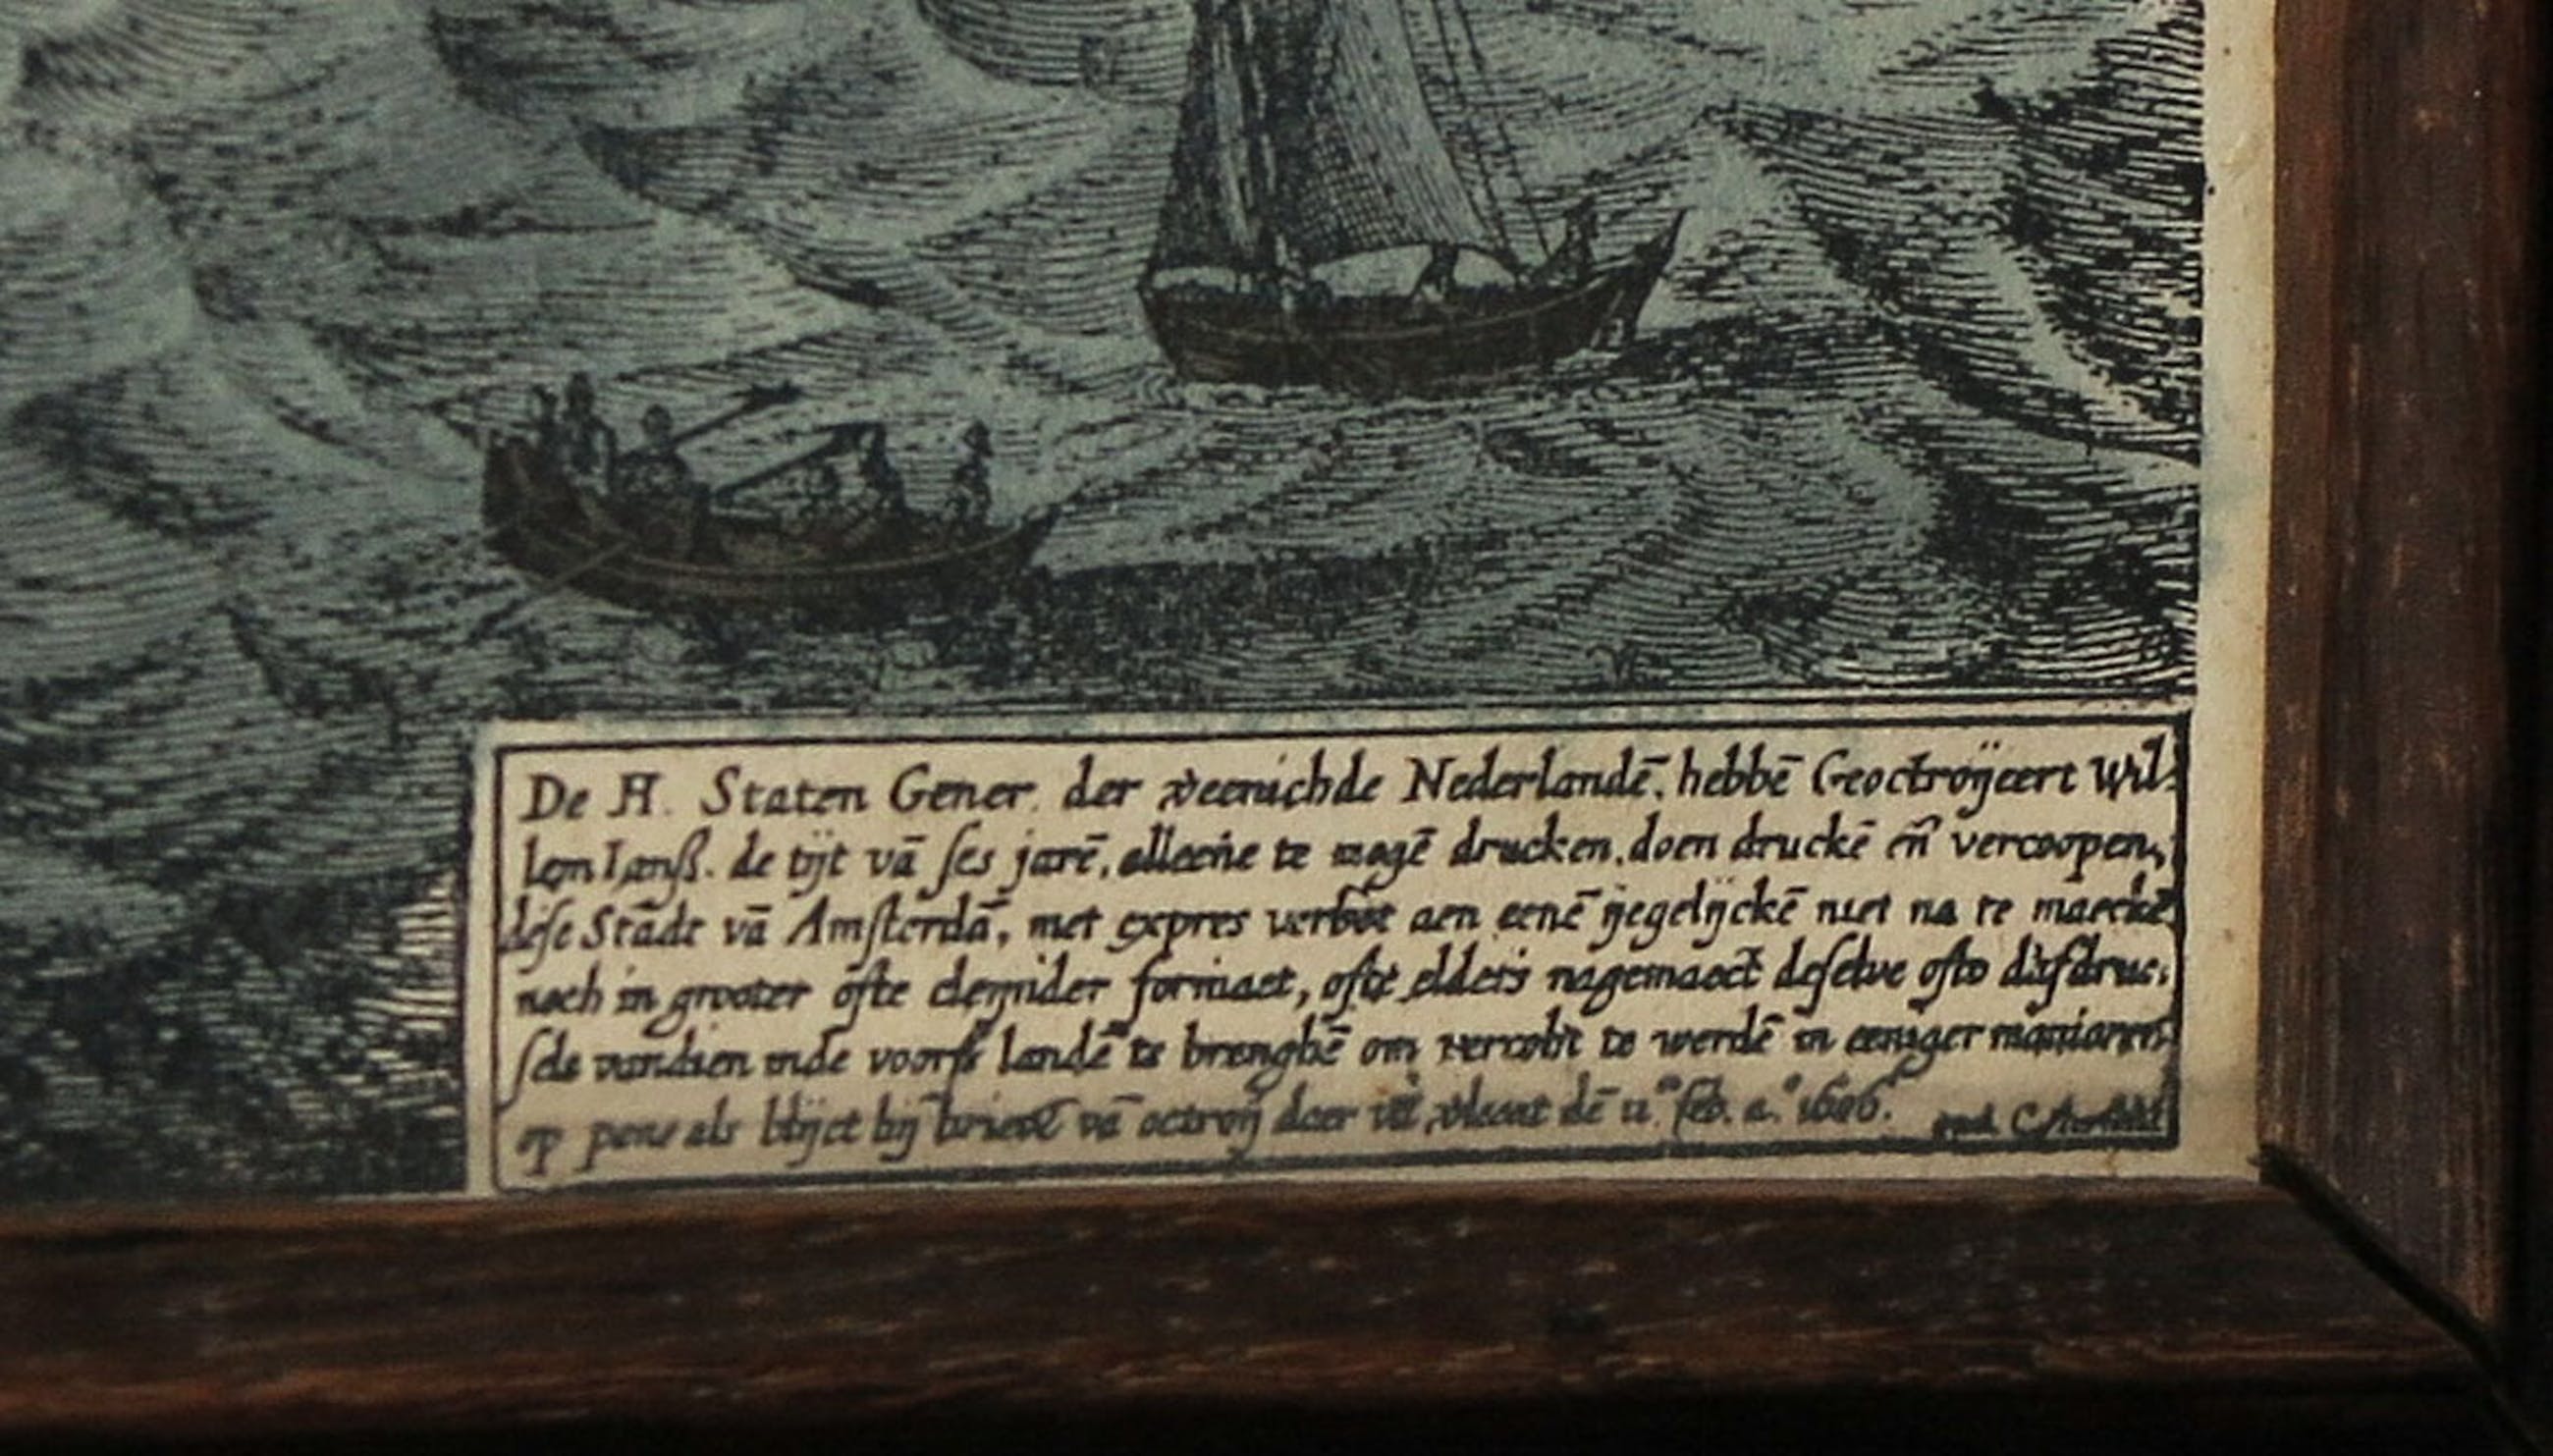 De H. Staten Gener. der veenichde Nederlandē, hebbē Geoctroÿeert Wil-
lem Ianß. de tijt vā ſes jarē, alleene te mogē drucken, doen druckē en̄ vercoopen,
deſe Stadt vā Amſterdā, met expres verbot aen eenē ÿegelÿckē niet na te maeckē
noch in grooter ofte cleynder formaet, ofte elders nagemaect deſelve ofte diſ
voorſß landē te brenghē om vercoht te werdē in eeniger manieren
op pene als blÿct bÿ brieve vā octroÿ daer dē feb. a.º 1606.